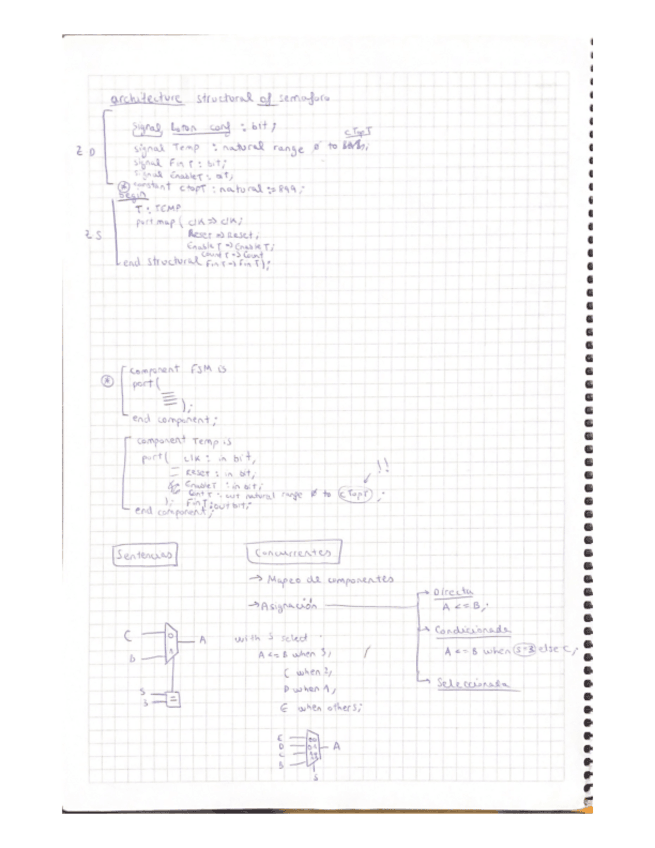 architecture structural of semaforo
signal boton_conf : bit;
cTopT
signal Temp : natural range 0 to
signal FinT : bit;
signal EnableT : bit;
ZD
* constant cTopT : natural := 899;
begin
T : TCMP
port map ( clk => clk;
Reset => Reset;
ZS
EnableT => EnableT;
CountT => Count
end structural FinT => FinT);
* component FSM is
port (
);
end component;
component Temp is
port ( clk : in bit;
Reset : in bit;
!!
EnableT : in bit;
ContT : out natural range 0 to cTopT ;
); FinT : out bit;
end component;
Sentencias Concurrentes
→ Mapeo de componentes
→ Asignación
→ Directa
A <= B;
→ Condicionada
A <= B when S=3 else C;
→ Seleccionada
C 0 A
B 1
S
3 =
with S select
A <= B when 3,
C when 2,
D when 1,
E when others;
E 00
D 01 A
C 10
B 11
S